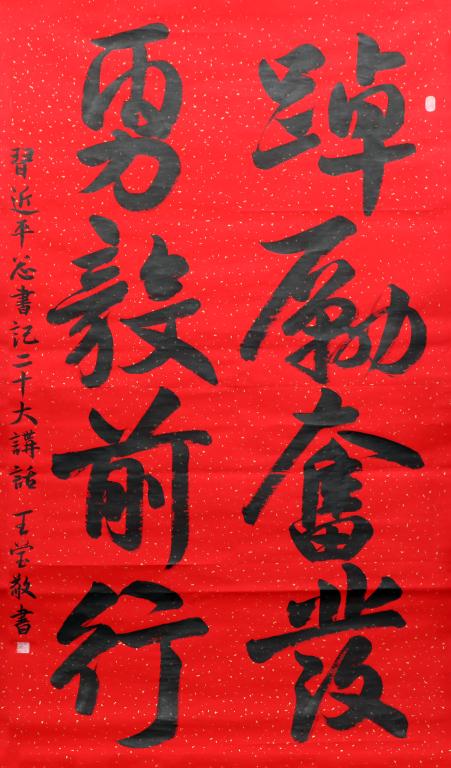 踔厲奮發
勇毅前行
習近平总書記二十大講話 王莹敬書